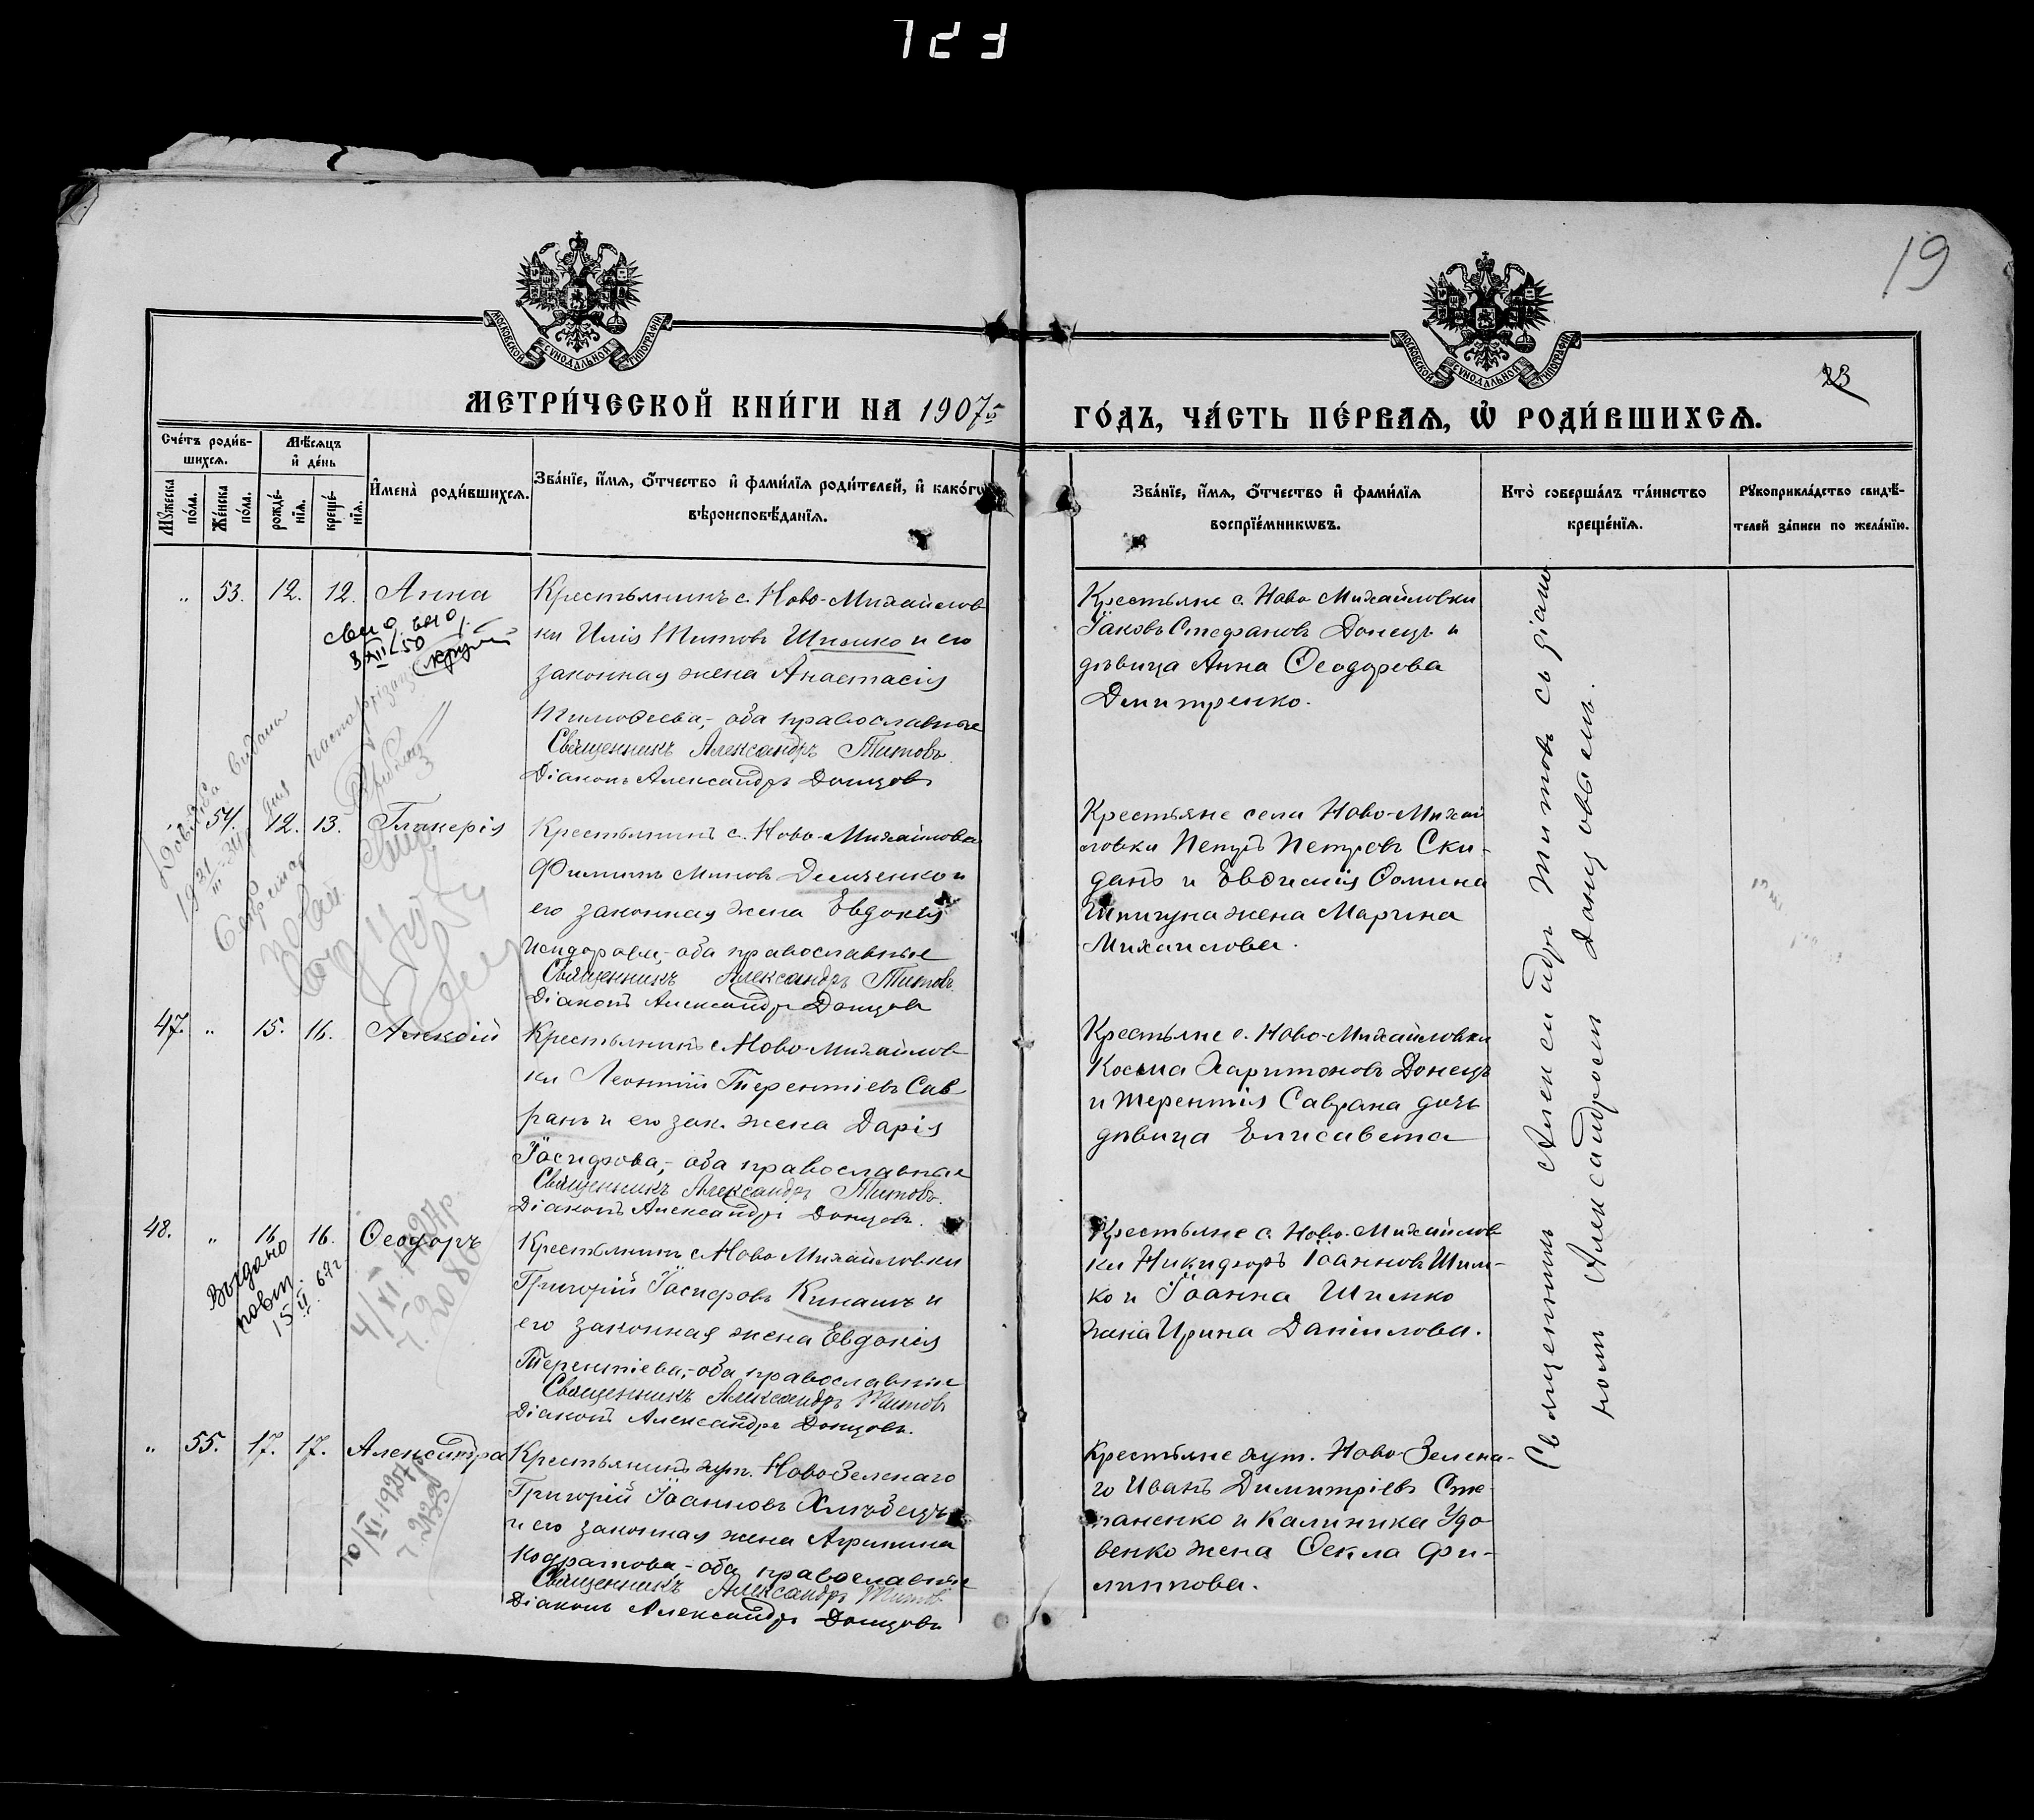 723
19
23
МОСКОВСКОЙ СУНОДАЛЬНОЙ ТИПОГРАФІИ
МОСКОВСКОЙ СУНОДАЛЬНОЙ ТИПОГРАФІИ
МЕТРИ́ЧЕСКОЙ КНИ́ГИ НА 1907
ГО́ДЪ, ЧА́СТЬ ПЕ́РВАЯ, Ѡ҆ РОДИ́ВШИХСЯ.
Сче́тъ роди́в-
шихся.
Мѣ́сяцъ
и҆ де́нь
Мꙋ́жеска по́ла.
Же́нска по́ла.
рожде́-
нїя.
креще́-
нїя.
И҆мена̀ роди́вшихся.
Зва́нїе, и҆́мя, ѻ҆́тчество и҆ фами́лїя роди́телей, и҆ како́гѡ
вѣроисповѣ́данїя.
Зва́нїе, и҆́мя, ѻ҆́тчество и҆ фами́лїя
воспрїе́мникѡвъ.
Кто̀ соверша́лъ та́инство
креще́нїя.
Рꙋкоприкла́дство свидѣ́-
телей за́писи по жела́нїю.
" 53. 12. 12. Анна
Крестьянинъ с. Ново-Михайлов
ки Илія Титовъ Шимко и его
законная жена Анастасія
Тимоѳеева,- оба православные
Священникъ Александръ Титовъ
Діаконъ Александръ Донцовъ
Крестьяне с. Ново Михайловки
Іаковъ Стефановъ Донецъ и
дѣвица Анна Ѳеодорова
Дмитренко.
54. 12. 13. Гликерія
Крестьянинъ с. Ново-Михайловки
Филиппъ Миновъ Демченко и
его законная жена Евдокія
Исидорова,- оба православные
Священникъ Александръ Титовъ
Діаконъ Александръ Донцовъ
Крестьяне села Ново-Михай
ловки Петръ Петровъ Ски-
данъ и Евѳимія Ѳомина
жена Марина
Михаилова.
47. " 15. 16. Алексій
Крестьянинъ с. Ново-Михайлов-
ки Леонтій Терентіевъ Сав
ранъ и его зак. жена Дарія
Іосифова,- оба православные
Священникъ Александръ Титовъ.
Діаконъ Александръ Донцовъ.
Крестьяне с. Ново-Михайловки
Косьма Харитоновъ Донецъ
и Терентія Саврана дочь
дѣвица Елисавета
48. " 16 16. Ѳеодоръ
Крестьянинъ с. Ново Михайловки
Григорій Іосифовъ Кинашъ и
его законная жена Евдокія
Терентіева,- оба православные
Священникъ Александръ Титовъ
Діаконъ Александръ Донцовъ.
Крестьяне с. Ново-Михайлов
ки Никифоръ Іоанновъ Шим-
ко и Іоанна Шимко
жена Ирина Даніилова.
" 55. 17. 17. Александра
Крестьянинъ хут. Ново-Зеленаго
Григорій Іоанновъ Хлѣбецъ
и его законная жена Агрипина
Кодратова,- оба православные
Священникъ Александръ Титовъ
Діаконъ Александръ Донцовъ
Крестьяне хут. Ново-Зелена-
го Иванъ Димитріевъ Сте-
паненко и Калиника Удо
венко жена Ѳекла Фи-
липпова.
Священникъ Александръ Титовъ съ діако-
номъ Александромъ Донцовымъ.
Выдано
повт.
15 II 67г
4/XI 1927р.
ч. 2080
10/XI 1927р